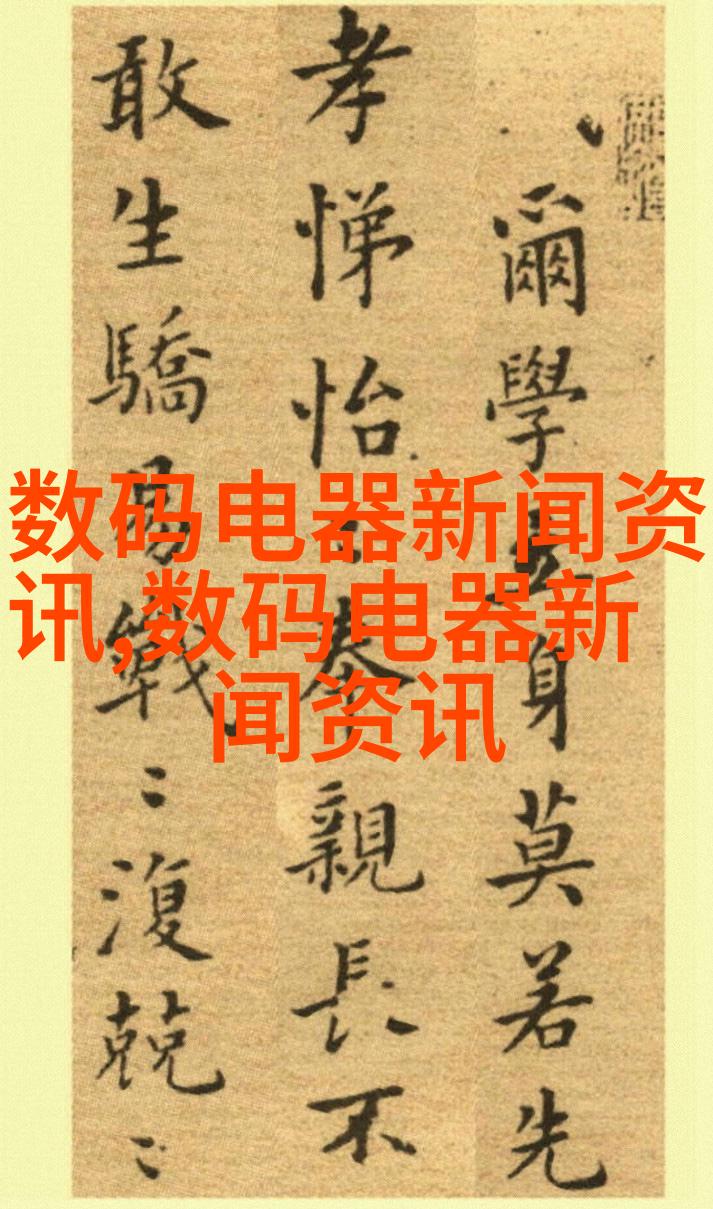 爾學立身莫若先
孝悌怡〻奉親長不
敢生驕易戰〻復兢〻
数码电器新闻资
讯,数码电器新
闻资讯